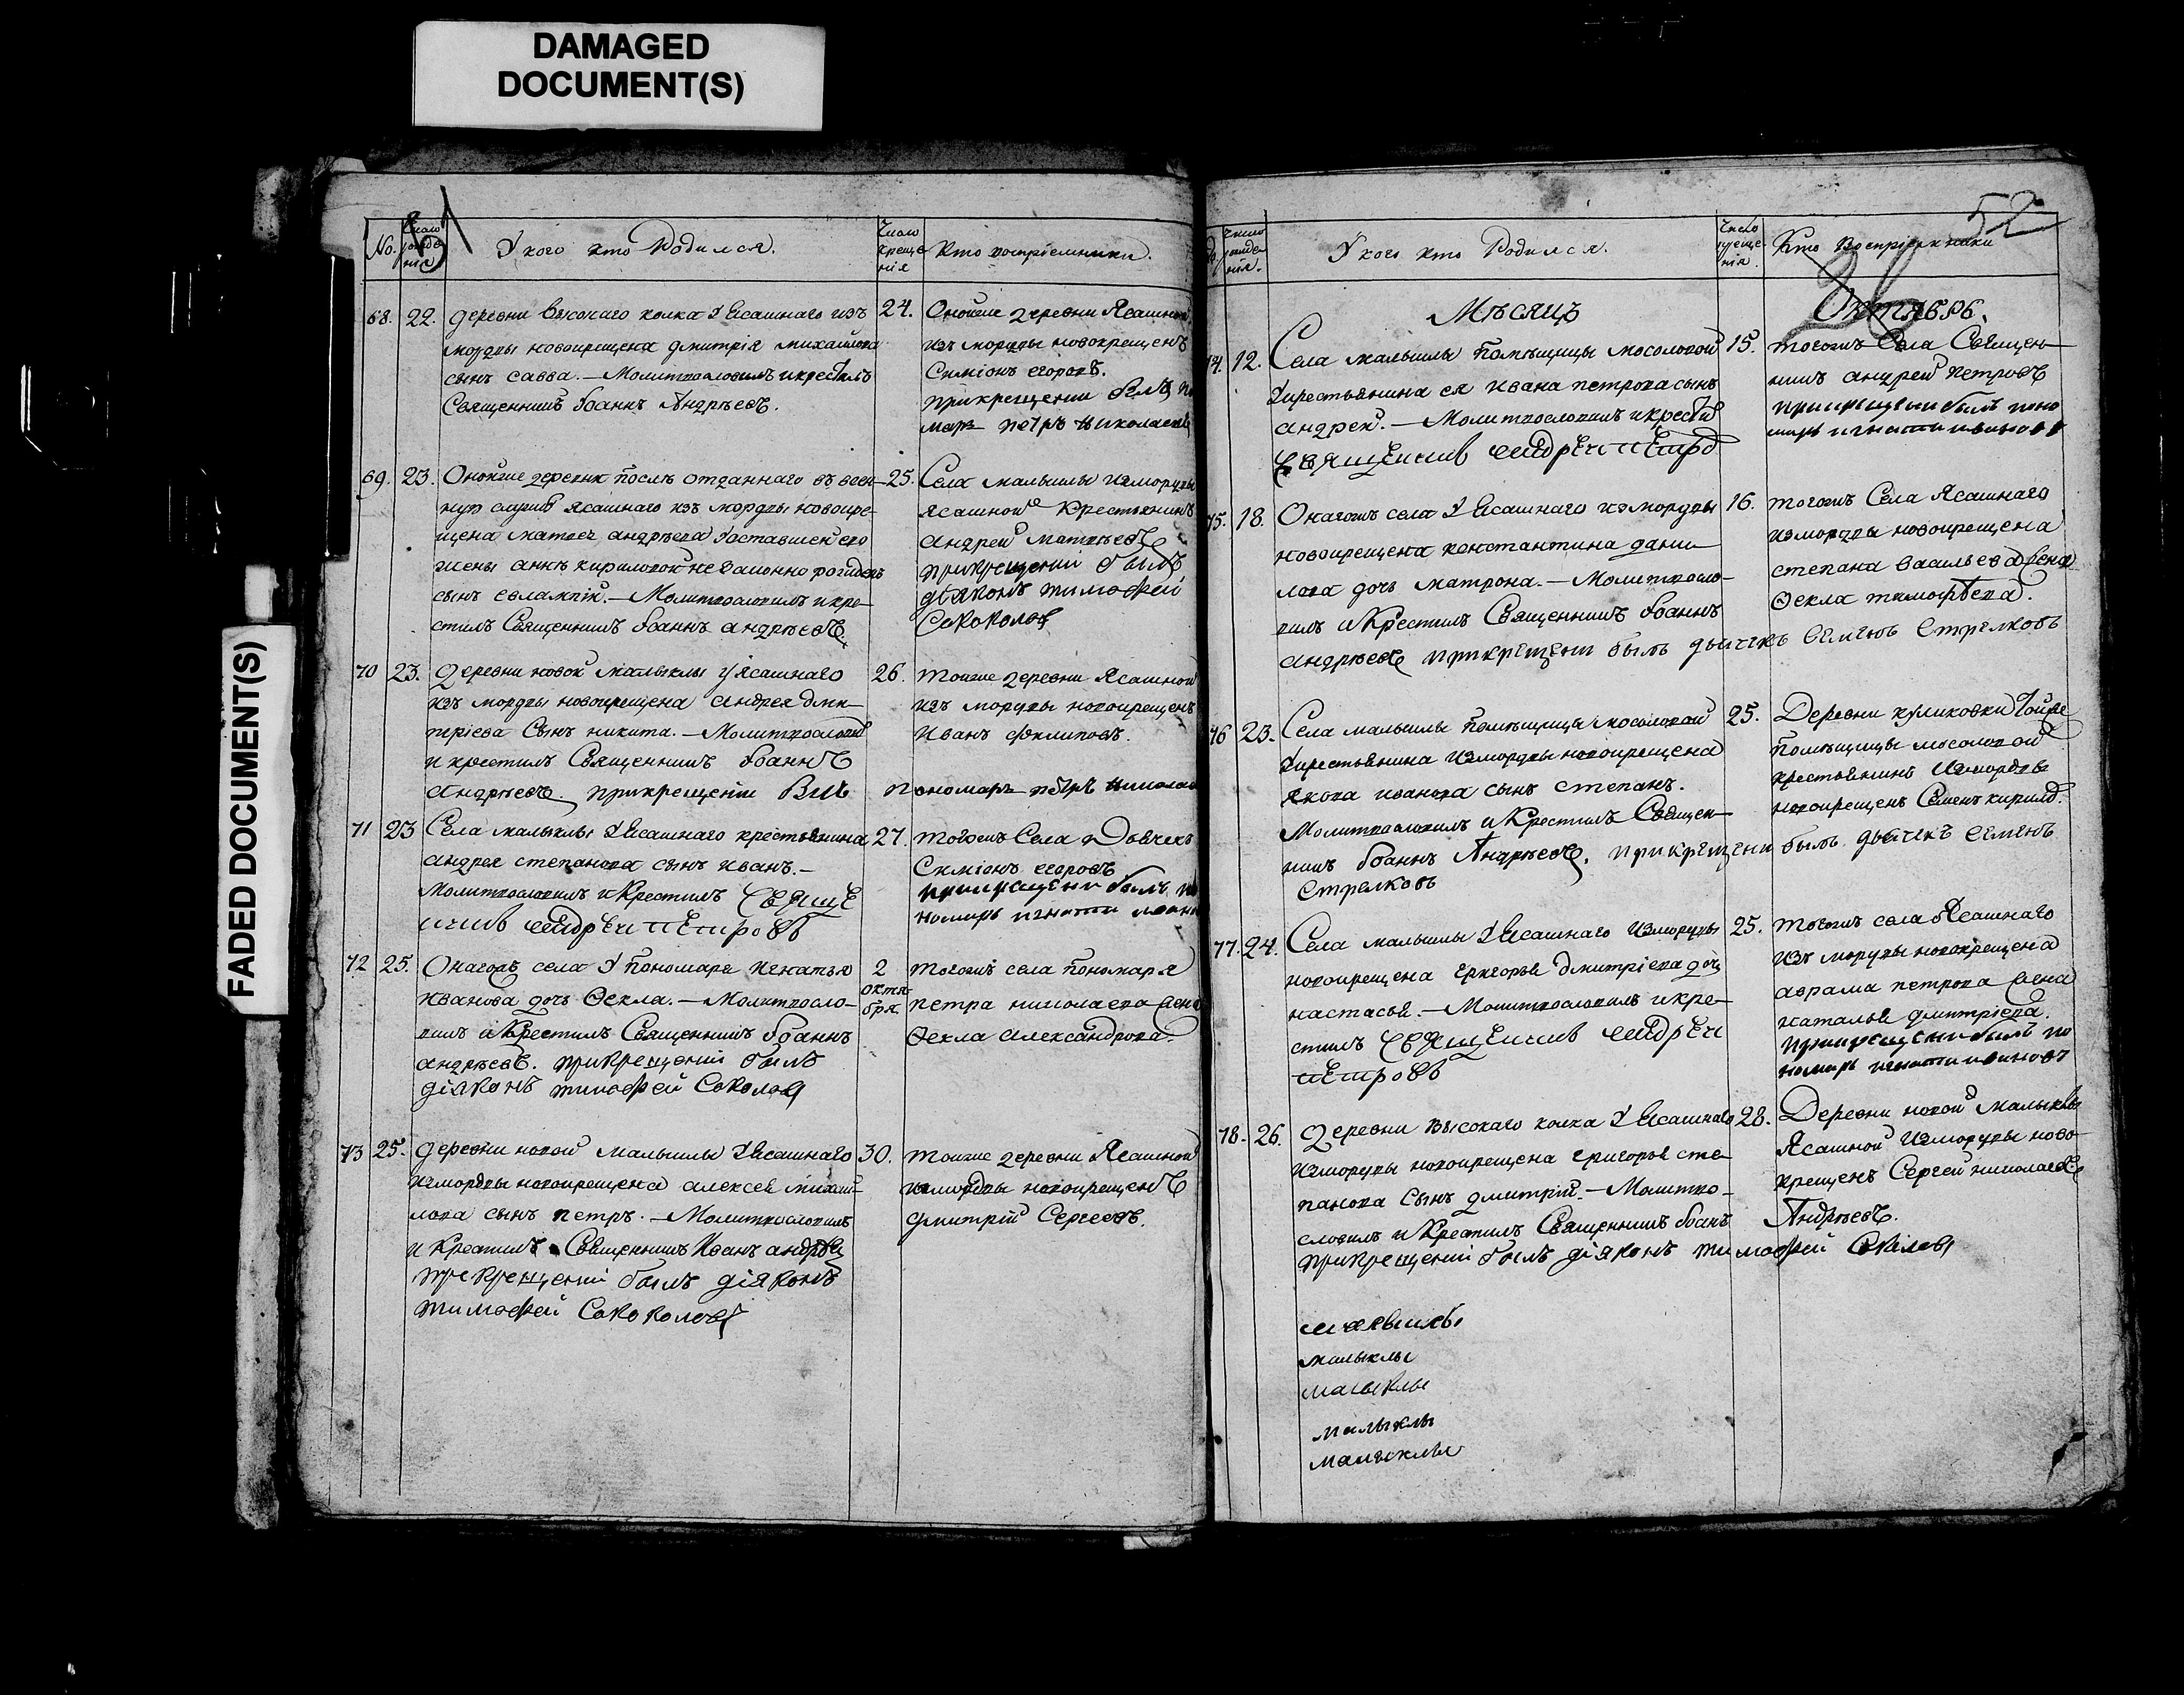 DAMAGED
DOCUMENT(S)
FADED DOCUMENT(S)
51
No.
Число рожде-нія
У кого кто Родился.
Число креще-нія
Кто воспріемники.
68. 22. деревни Высокаго колка У Ясашнаго изъ
мордвы новокрещена дмитрія михаилова
сынъ савва. — Молитвословилъ и крестилъ
Священникъ Іоаннъ Андрѣевъ.
24. Оной же деревни Ясашной
изъ мордвы новокрещенъ
Симіонъ егоровъ.
прикрещении былъ по
марь петръ николаевъ
69. 23. Оной же деревни послѣ отданнаго въ воен-
ную службу Ясашнаго изъ мордвы новокре-
щена матвея андрѣева У оставшей его
жены анны кириловой не законно рожденъ
сынъ евлампій. — Молитвословилъ и кре-
стилъ Священникъ Іоаннъ андрѣевъ.
25. Села малыклы изъ мордвы
Ясашной Крестьянинъ
андрей матвѣевъ
прикрещении былъ
діяконъ тимофей
Соколовъ
70 23. Деревни новой малыклы у Ясашнаго
изъ мордвы новокрещена андрея дми-
тріева Сынъ никита. — Молитвословилъ
и крестилъ Священникъ Іоаннъ
Андрѣевъ. прикрещеніи былъ пономарь петръ николаевъ
26. тойже деревни Ясашной
изъ мордвы новокрещенъ
Иванъ филиповъ.
71 23 Села малыклы У Ясашнаго крестьянина
андрея степанова сынъ иванъ. —
Молитвословилъ и Крестилъ Священ
никъ андрей петровъ
27. тогожъ Села Дьячекъ
Симіонъ егоровъ
прикрещении былъ по
номарь игнати ивановъ
72 25. Онагожъ села У пономаря игнатья
Иванова дочь Ѳекла. — Молитвосло-
вилъ и Крестилъ Священникъ Іоаннъ
андрѣевъ. прикрещеніи былъ
діяконъ тимофей Соколовъ
2 октя-бря.
тогожъ села пономаря
петра николаева жена
Ѳекла александрова.
73 25. деревни новой малыклы У Ясашнаго
изъ мордвы новокрещена алексея михаи-
лова сынъ петръ. — Молитвословилъ
и Крестилъ Священникъ Иванъ андрѣевъ
прикрещеніи былъ діяконъ
тимофей Соколовъ
30. тойже деревни Ясашной
изъ мордвы новокрещенъ
дмитрій Сергеевъ.
52
Число рожде-нія.
У кого кто Родился.
Число креще-нія.
Кто Воспріемники
26
Мѣсяцъ Октябрь.
74. 12. Села малыклы помѣщицы мосоловой
У крестьянина ея ивана петрова сынъ
андрей. — Молитвословилъ и крестилъ
Священникъ андреи петровъ
15. тогожъ Села Священ-
никъ андрей петровъ
прикрещении былъ поно
марь игнати ивановъ
75. 18. Онагожъ села У Ясашнаго изъ мордвы
новокрещена константина дани-
лова дочь матрона. — Молитвосло-
вилъ и Крестилъ Священникъ Іоаннъ
андрѣевъ прикрещени былъ дьячекъ Семенъ Стрелковъ
16. тогожъ Села Ясашнаго
изъ мордвы новокрещена
степана васильева жена
Ѳекла тимофѣева.
76 23. Села малыклы помѣщицы мосоловой
У крестьянина изъ мордвы новокрещена
якова иванова сынъ степанъ.
Молитвословилъ и Крестилъ Священ-
никъ Іоаннъ Андрѣевъ. прикрещени былъ дьячекъ Семенъ
Стрелковъ
25. Деревни куликовки
помѣщицы мосоловой
крестьянинъ изъ мордвы
новокрещенъ Семенъ кирилъ.
77. 24. Села малыклы У Ясашнаго изъ мордвы
новокрещена григорья дмитріева дочь
настасья. — Молитвословилъ и кре-
стилъ Священникъ андреи
петровъ
25. тогожъ села Ясашнаго
изъ мордвы новокрещена
аврама петрова жена
наталья дмитріева.
прикрещени былъ по
номарь игнати ивановъ
78. 26. Деревни высокаго колка У Ясашнаго
изъ мордвы новокрещена григорья сте-
панова Сынъ дмитрій. — Молитво-
словилъ и Крестилъ Священникъ Іоанъ Андрѣевъ.
прикрещеніи былъ діяконъ тимофей Соколовъ
28. Деревни новой малыклы
Ясашной изъ мордвы ново-
крещенъ Сергей николаевъ
малыклы
малыклы
малыклы
малыклы
малыклы